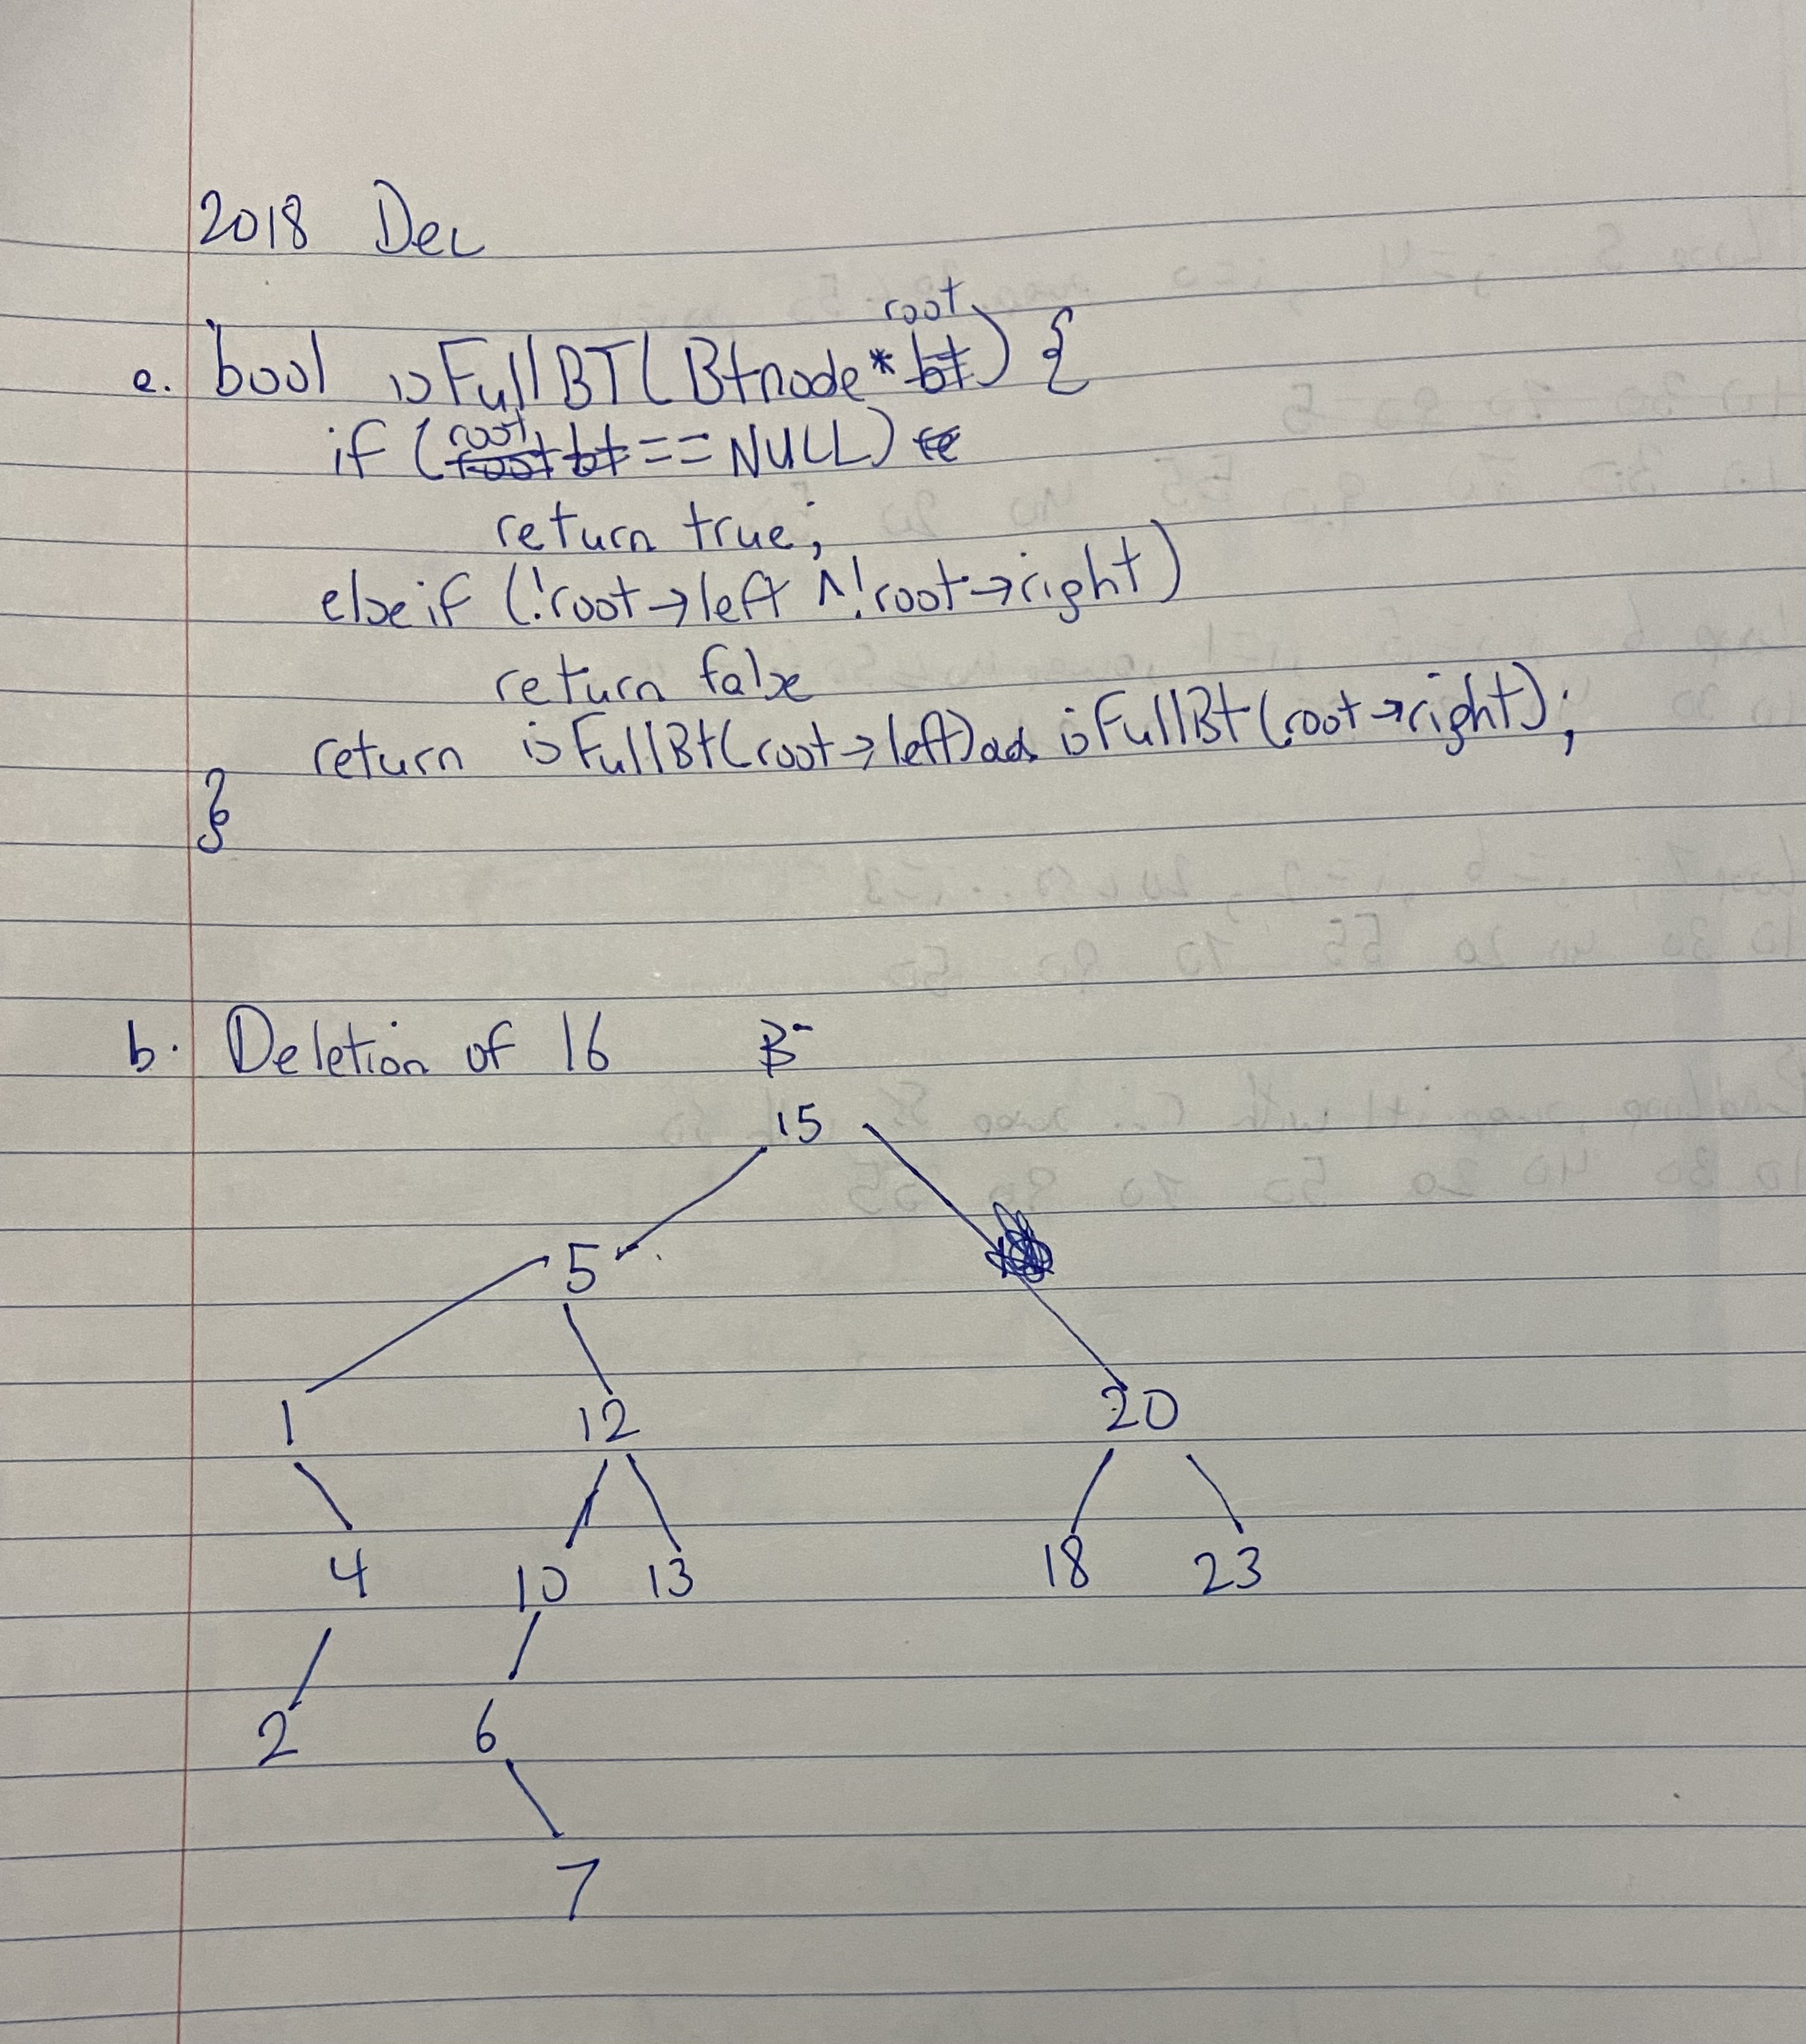 2018 Dec
root
a. bool isFullBT(Btnode* bt) {
if (root == NULL)
return true;
else if (!root→left ^ !root→right)
return false
return isFullBt(root→left) && isFullBt(root→right);
}
b. Deletion of 16
15
5
1 12 20
4 10 13 18 23
2 6
7